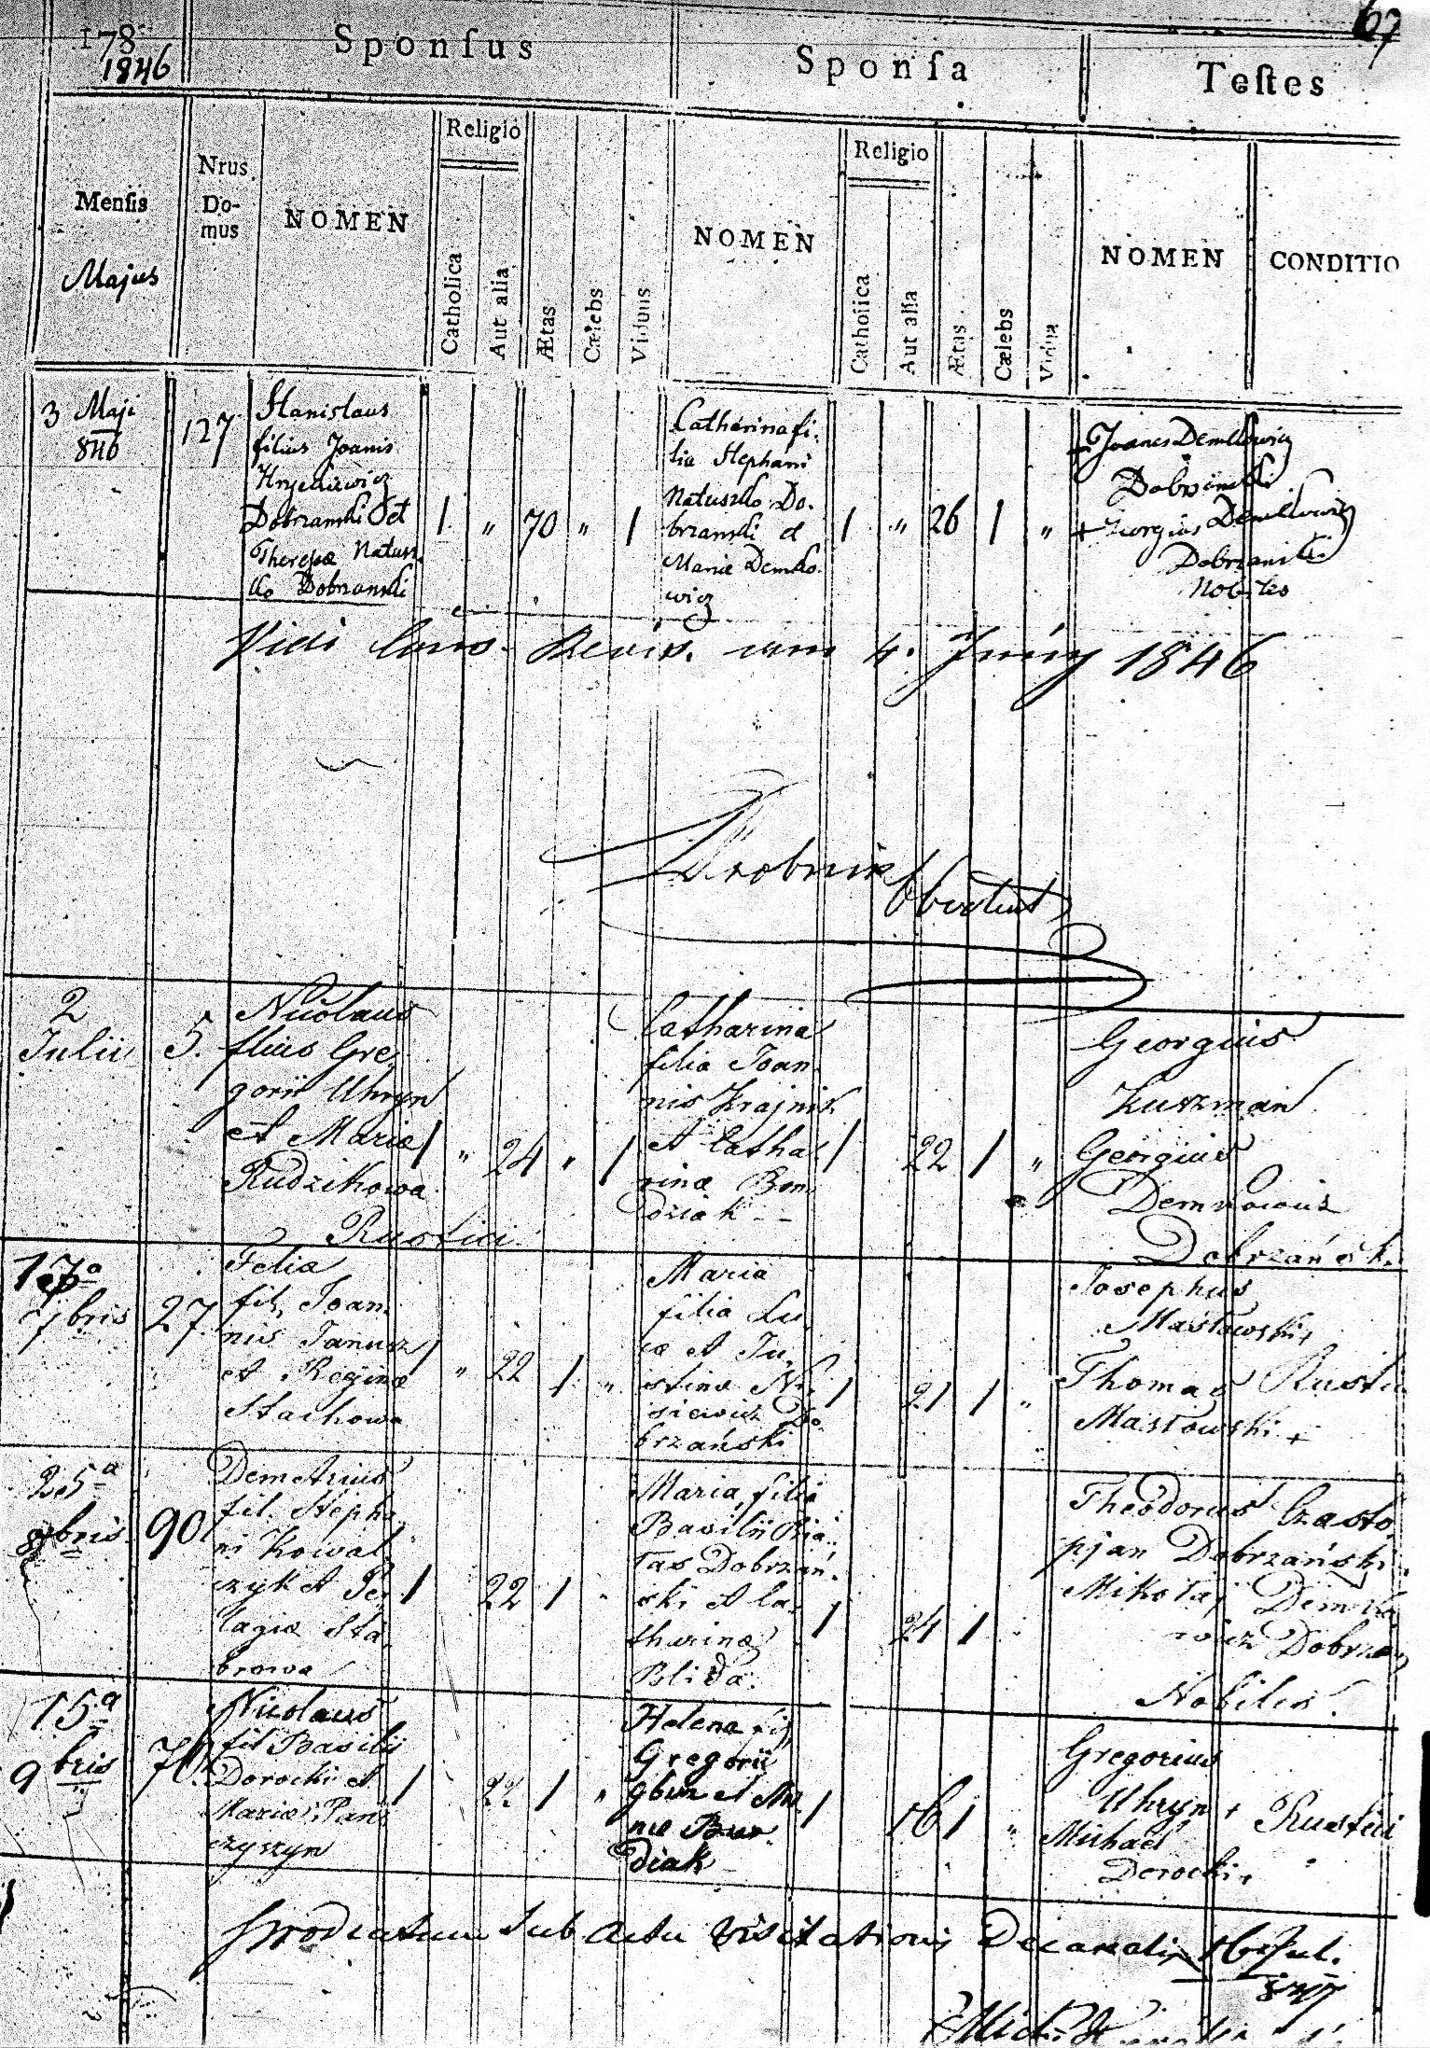 67
178
1846
Sponſus
Sponſa
Teſtes
Menſis
Majus
Nrus
Do-
mus
NOMEN
Religio
Catholica
Aut alia
Ætas
Cælebs
Viduus
NOMEN
Religio
Catholica
Aut alia
Ætas
Cælebs
Vidua
NOMEN
CONDITIO
3 Maji
846
127
Stanislaus
filius Joanis
Dobrzanski et
Theresæ Natusz
ko Dobrzanski
1 " 70 " 1
Catharina fi-
lia Stephani
Natuszko Do-
brzanski et
Mariæ Demko-
wicz
1 " 26 1 "
+ Joanes Demkowicz
Dobrzanski
+ Georgius Demkowicz
Dobrzanski
Nobiles
Vidi Revis. am 4. Juny 1846
2
Julii
5.
Nicolaus
filius Gre
gorii Uhryn
et Mariæ
Rudzikowa
Rustici
1 " 24 " 1
Catharina
filia Joan
nis Krajnik
et Catha
rinæ Bon
dziak - -
1 22 1 "
Georgius
Kuszman
Georgius
Demkowicz
Dobrzański
17a
7bris
27
Felix
fil. Joan
nis Janusz
et Reginæ
Stachowa
1 " 22 1 "
Maria
filia Lu
cæ et Ju
stinæ Ni
siewicz Do
brzański
1 21 1 "
Josephus
Masłowski +
Thomas
Masłowski +
Rustici
25a
8bris
90
Demetrius
fil. Stepha
ni Kowal
czyk et Pe
lagiæ Sta
browa
1 22 1
Maria filia
Basilii
Dobrzań
ski et Ca
tharinæ
Blida.
1 24 1
Theodorus Czasto
pjan Dobrzański
Mikołaj Demko
wicz Dobrzań
Nobiles.
15a
9bris
70
Nicolaus
fil Basilii
Dorocki et
Mariæ Pań
czyszyn
1 22 1 "
Helena fil
Gregorii
et An
næ Bun
diak
1 16 1 "
Gregorius
Uhryn +
Michael
Dorocki +
Rustici
Productum sub actu Visitationis Decanalis 16 Jul.
847